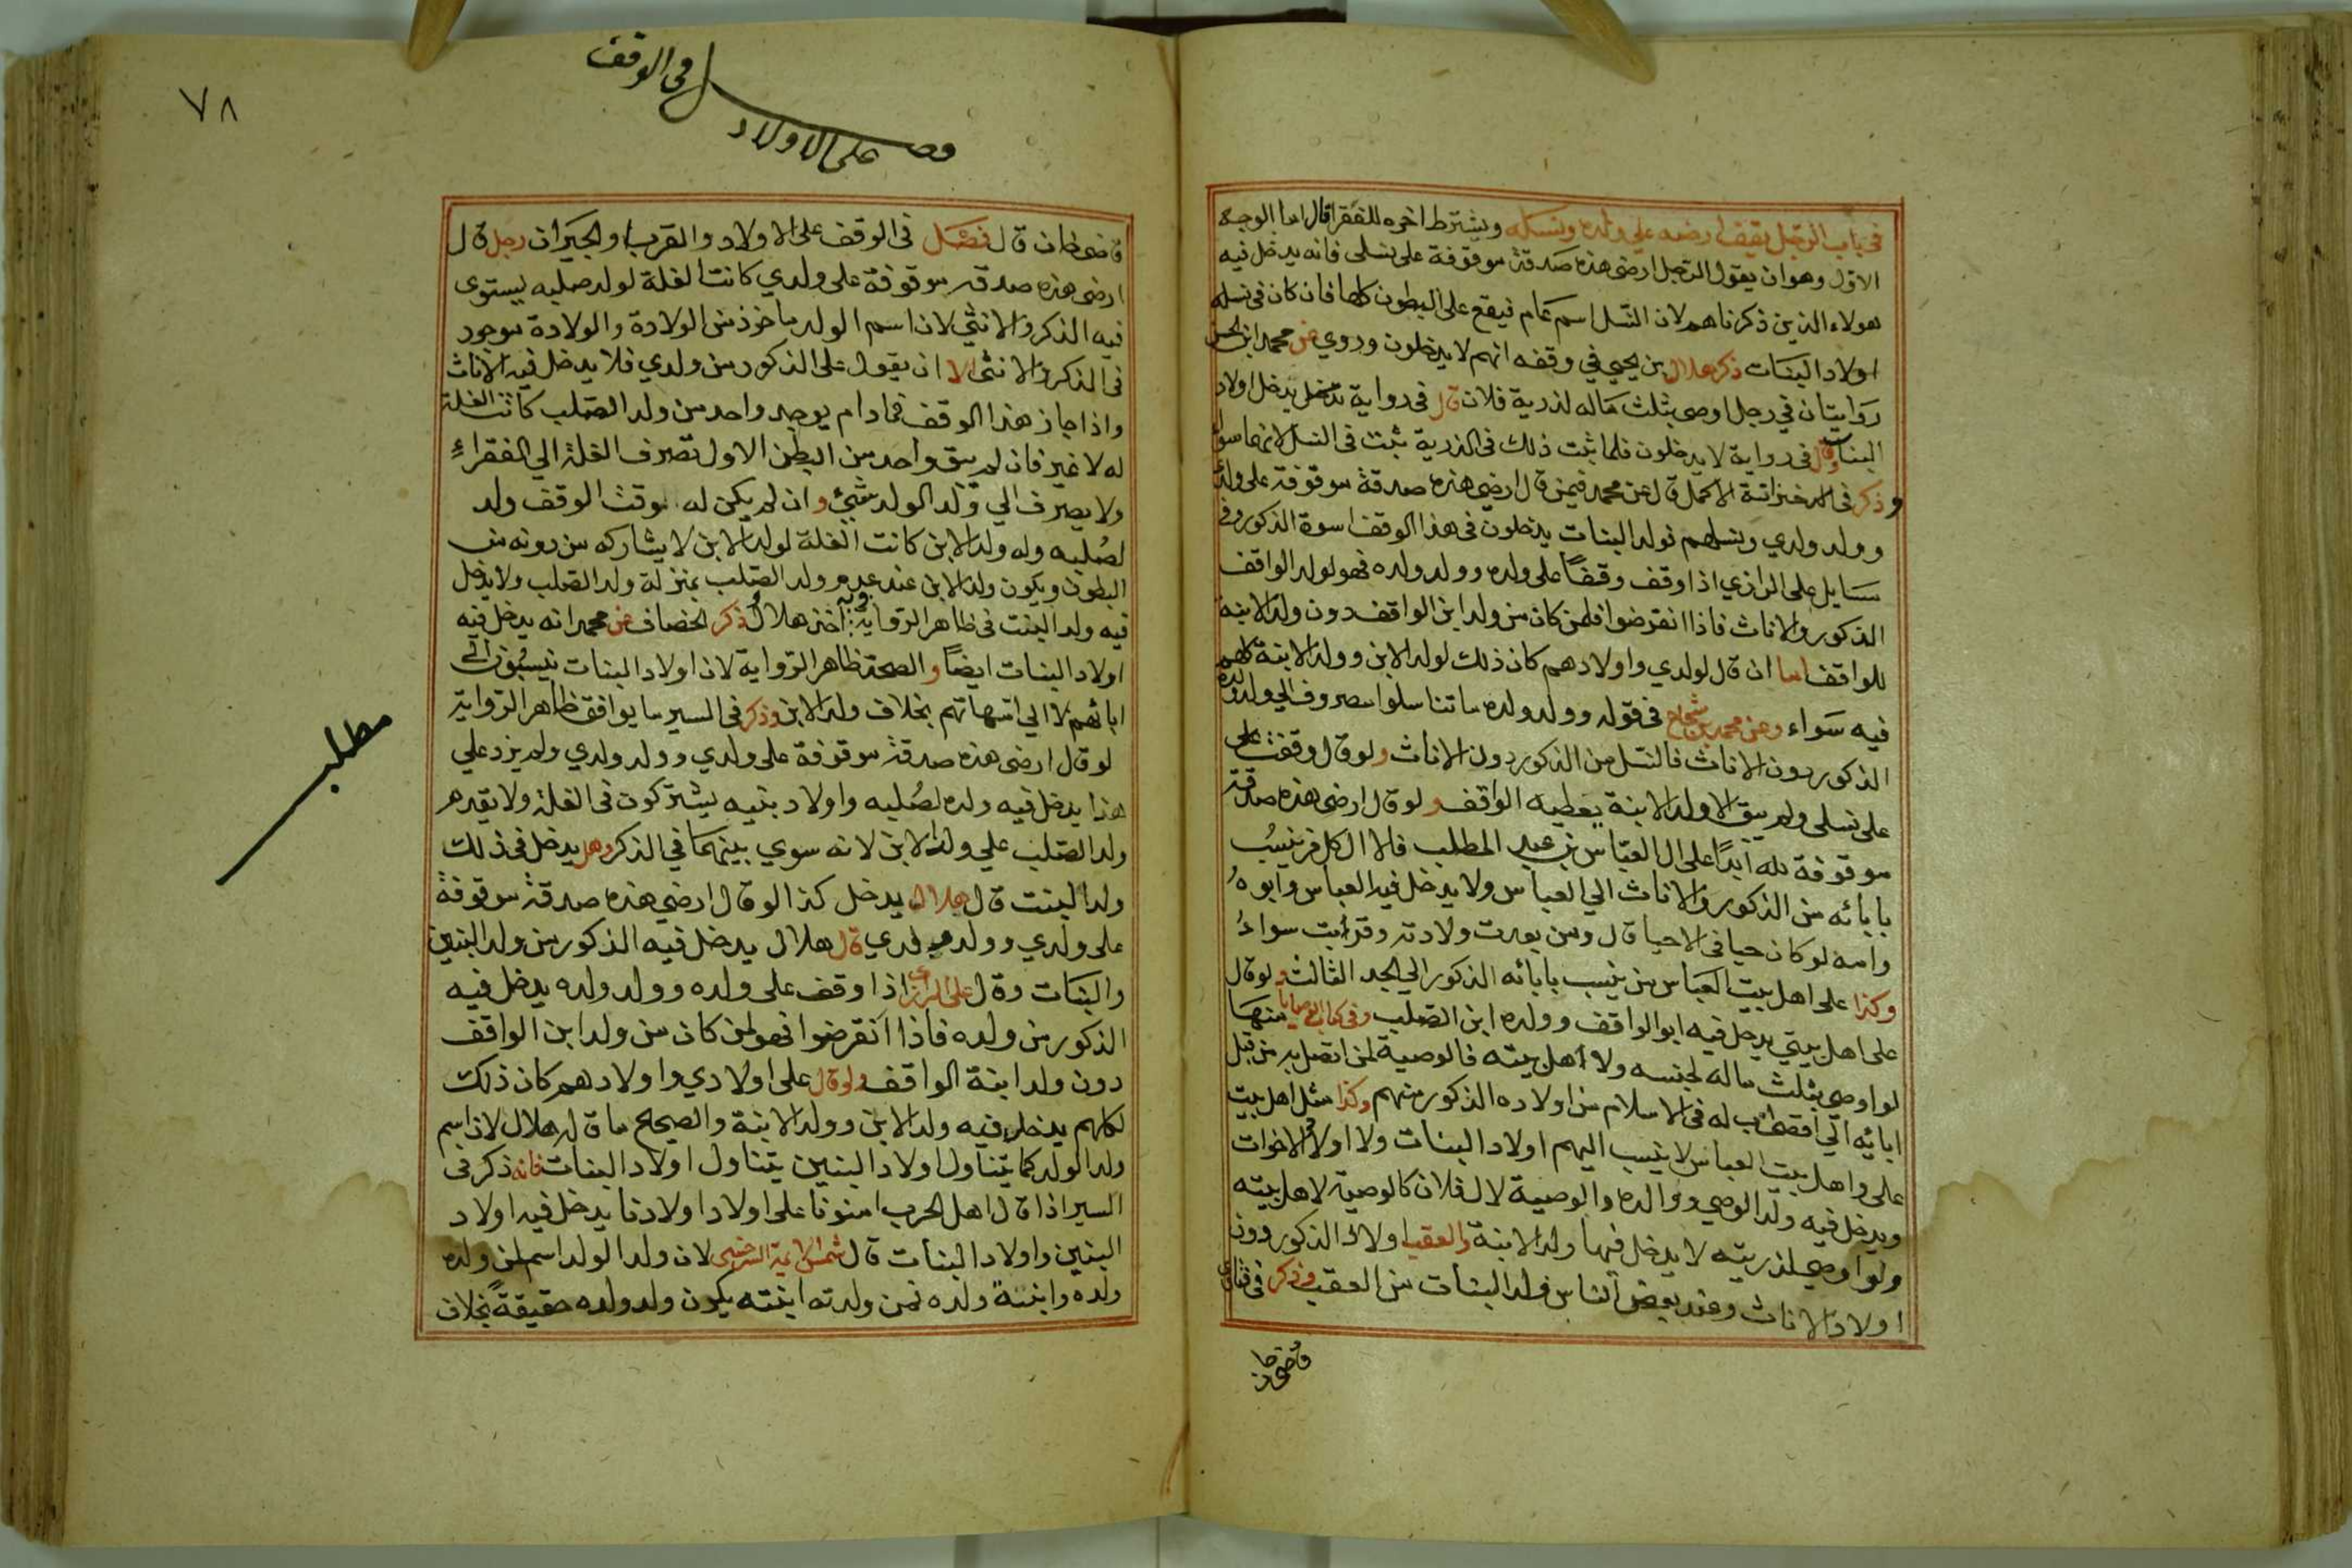 في باب الرجل يقف ارضه علي ولده ونسله ويشترط اخره للفقرا قال اما الوجه
الاول وهو ان يقول الرجل ارضي هذه صدقة موقوفة على نسلى فانه يدخل فيه
هولاء الذين ذكرناهم لان النسل اسم عام فيقع على البطون كلها فان كان في نسله
اولاد البنات ذكر هلال بن يحيي في وقفه انهم لا يدخلون وروي عن محمد ابن الحسن
روايتان في رجل اوصى بثلث ماله لذرية فلان قال في رواية يدخل اولاد
البنات وقال في رواية لا يدخلون فلما ثبت ذلك في الذرية ثبت في النسل لانهما سواء
وذكر في خزانة الاكمل قال عن محمد فيمن قال ارضي هذه صدقة موقوفة على ولدي
وولد ولدي ونسلهم فولد البنات يدخلون في هذا الوقف اسوة الذكور وفي
مسايل على الرازي اذا وقف وقفاً على ولده وولد ولده فهو لولد الواقف
الذكور والاناث فاذا انقرضوا فلمن كان من ولد ابن الواقف دون ولد الابنة
للواقف اما ان قال لولدي واولادهم كان ذلك لولد الابن وولد الابنة كلهم
فيه سواء وعن محمد بن شجاع في قوله وولد ولده ما تناسلوا مصروف الي ولد ولده
الذكور دون الاناث فالنسل من الذكور دون الاناث ولو قال وقفت على
على نسلى ولم يبق الا ولد الابنة يعطيه الواقف ولو قال ارضى هذه صدقة
موقوفة لله ابداً على ال العباس بن عبد المطلب فالال كل من ينسب
بابائه من الذكور والاناث الي العباس ولا يدخل فيه العباس وابوهُ
وامه لو كان حيا في الاحيا قال ومن يعرف ولادته وقرابت سواءُ
وكذا على اهل بيت العباس من ينسب بابائه الذكور الي الجد الثالث ولو قال
على اهل بيتي يدخل فيه ابو الواقف وولده ابن الصلب وفي كتاب الوصايا منها
لو اوصى بثلث ماله لجنسه ولاهل بيته فالوصية لمن اتصل به من قبل
ابائه الي اقصى اب له في الاسلام من اولاده الذكور منهم وكذا مثل اهل بيت
على واهل بيت العباس لا ينسب اليهم اولاد البنات ولا اولاد الاخوات
ويدخل فيه ولد الوصي ووالده والوصية لال فلان كالوصية لاهل بيته
ولو اوصي لذريته لا يدخل فيها ولد الابنة والعقب اولاد الذكور دون
اولاد الاناث وعند بعض الناس ولد البنات من العقب وذكر في فتاوى
قاضى خا ن
فصل في الوقف
على الاولاد
٧٨
قاضى خان قال فصل فى الوقف على الاولاد والقربا والجيران رجل قال
ارضى هذه صدقة موقوفة على ولدي كانت الغلة لولد صلبه يستوى
فيه الذكر والانثى لان اسم الولد ماخوذ من الولادة والولادة موجود
فى الذكر والانثى الا ان يقول على الذكور من ولدي فلا يدخل فيه الاناث
واذا جاز هذا الوقف فما دام يوجد واحد من ولد الصلب كانت الغلة
له لا غير فان لم يبق واحد من البطن الاول تصرف الغلة الي الفقراءِ
ولا يصرف الي ولد الولد شئ وان لم يكن له وقت الوقف ولد
لصُلبه وله ولد الابن كانت الغلة لولد الابن لا يشاركه من دونه من
البطون ويكون ولد الابن عند عدم ولد الصلب بمنزلة ولد الصلب ولا يدخل
فيه ولد البنت فى ظاهر الرواية وبه اخذ هلال وذكر الخصاف عن محمد انه يدخل فيه
اولاد البنات ايضاً والصحة ظاهر الرواية لان اولاد البنات ينسبون الى
ابائهم لا الي امهاتهم بخلاف ولد الابن وذكر فى السير ما يوافق ظاهر الرواية
لو قال ارضى هذه صدقة موقوفة على ولدي وولد ولدي ولم يزد علي
هذا يدخل فيه ولده لصُلبه واولاد بنيه يشتركون فى الغلة ولا يقدم
ولد الصلب علي ولد الابن لانه سوي بينهما في الذكر وهل يدخل فى ذلك
ولد البنت قال هلال يدخل كذا لو قال ارضي هذه صدقة موقوفة
على ولدي وولد ولدي قال هلال يدخل فيه الذكور من ولد البنين
والبنات وقال على الرازى اذا وقف على ولده وولد ولده يدخل فيه
الذكور من ولده فاذا انقرضوا فهو لمن كان من ولد ابن الواقف
دون ولد ابنة الواقف ولو قال على اولادي واولادهم كان ذلك
لكلهم يدخل فيه ولد الابن وولد الابنة والصحيح ما قاله هلال لان اسم
ولد الولد كما يتناول اولاد البنين يتناول اولاد البنات فانه ذكر فى
السير اذا قال اهل الحرب امنونا على اولاد اولادنا يدخل فيه اولاد
البنين واولاد البنات قال شمس الايمة السرخسى لان ولد الولد اسم لمن ولده
ولده وابنتهُ ولده فمن ولدته ابنته يكون ولد ولده حقيقةً بخلاف
مطلب